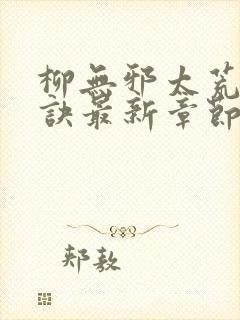 柳無邪太荒
訣最新章節
郟敖